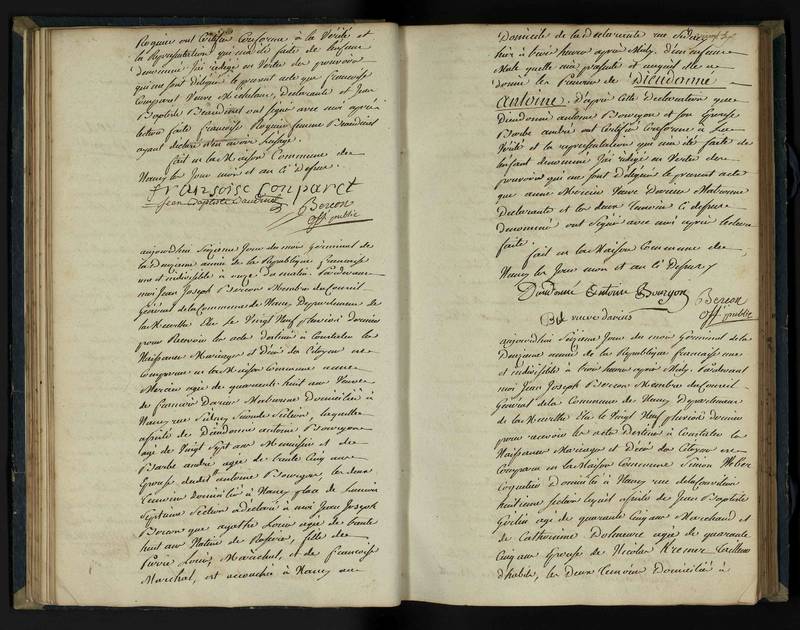 Roquin ont Certifié Conforme à la Vérité et
la Représentation qui m'a été faite de l'enfant
denommé j'ai rédigé en Vertu des pouvoirs
qui me sont délégués le présent acte que françoise
Comparet Veuve déclarante et Jean
Baptiste Beaudinet ont signé avec moi après
lecture faite françoise Roquin femme Beaudinet
ayant déclaré n'en avoir l'usage.
fait en la Maison Commune de
Nancy les Jour mois et an ci dessus.
françoise Conparet
Jean Baptiste
Bereon
off. public
aujourdhui Seizieme Jour du mois Germinal de
la Deuzieme année de la Republique francaise
une et indivisible à onze du matin Pardevant
moi Jean Joseph Bereon Membre du Conseil
Général de la Commune de Nancy Departement de
la Meurthe Elu le Vingt Neuf pluviose dernier
pour Recevoir les actes destinés à Constater les
Naissances Mariages et Décès des Citoyens est
Comparue en la Maison Commune anne
Mercier agée de quarante huit ans Veuve
de francois Darius Domiciliée à
Nancy rue Sidney Seconde Section, laquelle
assistée de Dieudonné antoine Bourgon
agé de Vingt Sept ans Menuisier et de
Barbe andré agée de trente Cinq ans
Epouse dudit antoine Bourgon, les deux
temoins Domiciliés à Nancy place de
Septieme Section a déclaré à moi Jean Joseph
Bereon que agathe Louis agée de trente
huit ans Native de Rosieres, fille de
Pierre Louis, Maréchal, et de francoise
Marchal, est accouchée à Nancy au
Domicile de la Declarante rue Sidney
hier à trois heures après Midy d'un enfant
Male quelle m'a présenté et auquel elle a
donné les Prenoms de Dieudonné
antoine. d'après cette déclaration que
Dieudonné antoine Bourgon et son Epouse
Barbe andré ont Certifiée Conforme à la
Vérité et la représentation qui m'a été faite de
l'enfant denommé j'ai rédigé en Vertu des
pouvoirs qui me sont délégués le présent acte
que anne Mercier Veuve Darius
Declarante et les deux temoins ci dessus
denommés ont signé avec moi après lecture
faite.
fait en la Maison Commune de
Nancy les Jour mois et an ci Dessus
Dieudonné Entoine Bourgon
Bereon
off. public
veuve darius
aujourdhui Seizieme Jour du mois Germinal de la
Deuzieme année de la Republique francaise une
et indivisible à trois heures après Midy. Pardevant
moi Jean Joseph Bereon Membre du Conseil
Général de la Commune de Nancy Departement
de la Meurthe Elu le Vingt Neuf pluviose dernier
pour recevoir les actes Destinés à Constater les
Naissances Mariages et Décès des Citoyens est
Comparu en la Maison Commune Simon Weber
Domicilié à Nancy rue de la Constitution
huitieme Section lequel assisté de Jean Baptiste
agé de quarante Cinq ans Marchand et
de Catherinne agée de quarante
Cinq ans Epouse de Nicolas Kremer tailleur
d'habits, les Deux temoins Domiciliés à